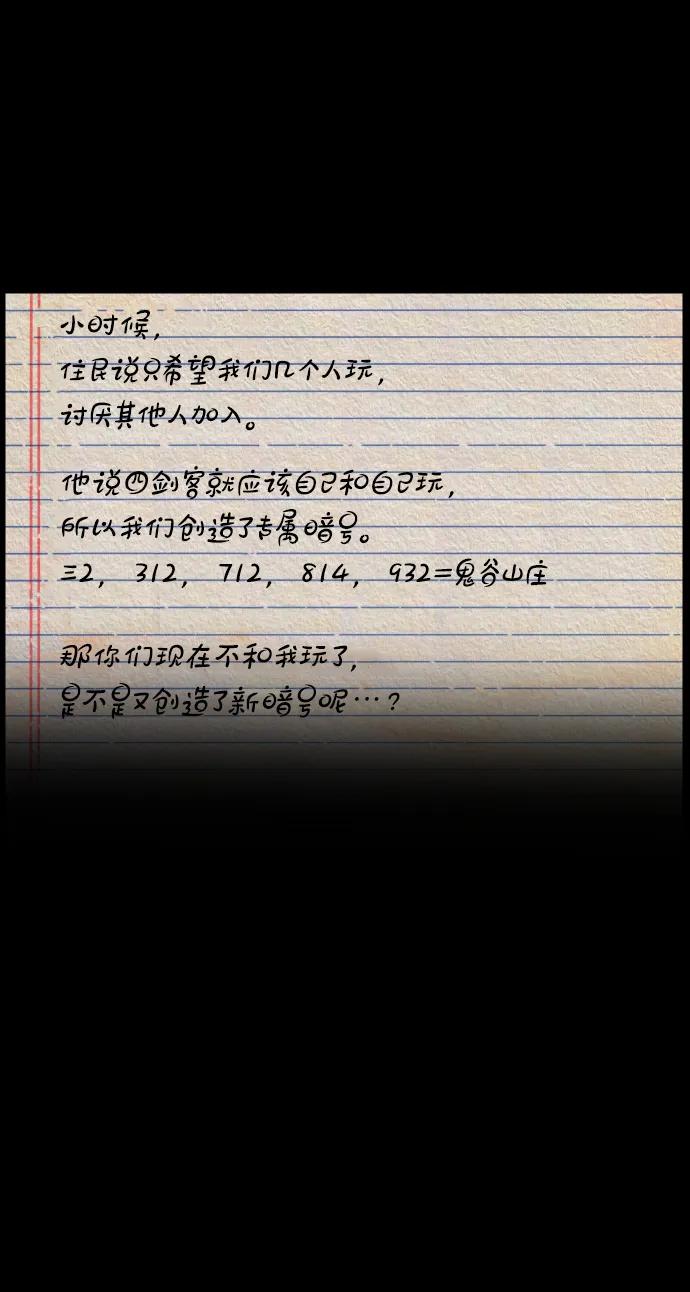 小时候，
住民说只希望我们几个人玩，
讨厌其他人加入。
他说四剑客就应该自己和自己玩，
所以我们创造了专属暗号。
三2， 312， 712， 814， 932=鬼谷山庄
那你们现在不和我玩了，
是不是又创造了新暗号呢…？